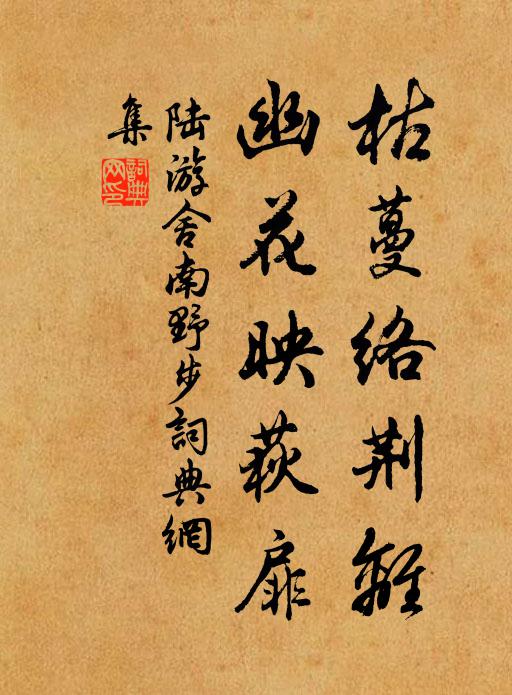 枯蔓络荆離
幽花映荻扉
陆游舍南野步詞典網
集
詞典
网印